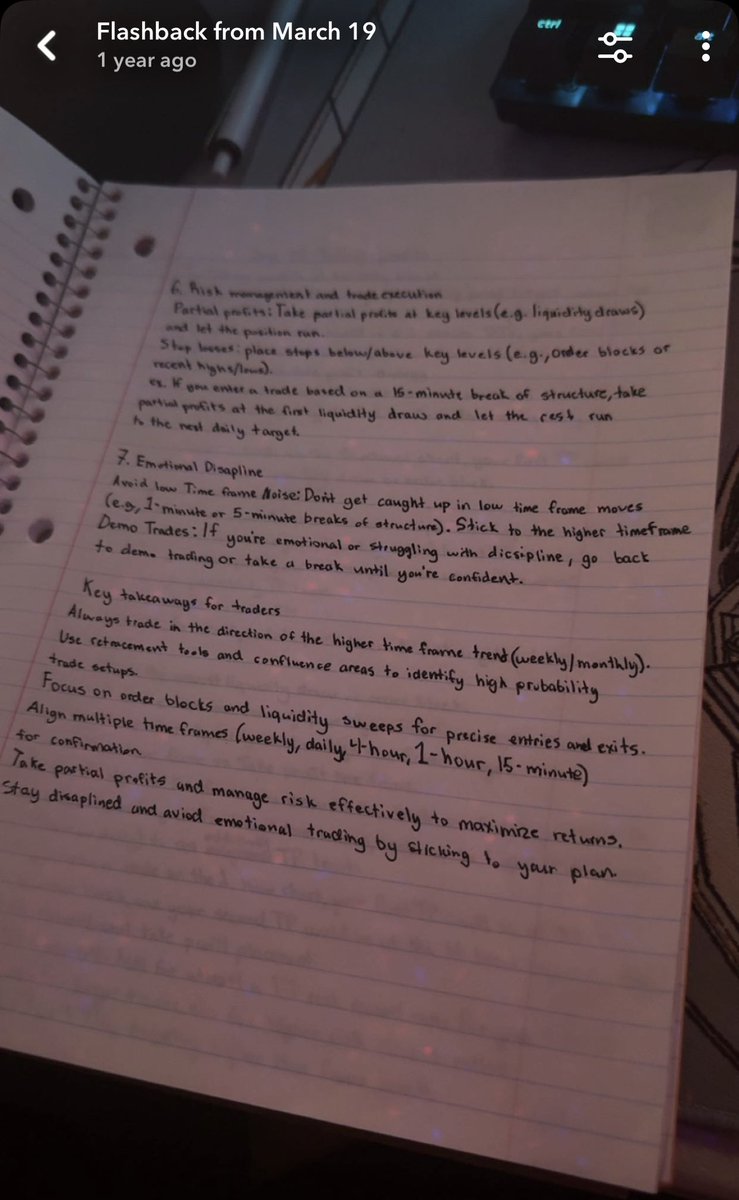 Flashback from March 19
1 year ago
ctrl
6. Risk management and trade execution
Partial profits: Take partial profits at key levels (e.g. liquidity draws)
and let the position run.
Stop losses: place stops below/above key levels (e.g., order blocks or
recent highs/lows).
ex. If you enter a trade based on a 15-minute break of structure, take
partial profits at the first liquidity draw and let the rest run
to the next daily target.
7. Emotional Disapline
Avoid low Time frame Noise: Don't get caught up in low time frame moves
(e.g, 1-minute or 5-minute breaks of structure). Stick to the higher timeframe
Demo Trades: If you're emotional or struggling with dicsipline, go back
to demo trading or take a break until you're confident.
Key takeaways for traders
Always trade in the direction of the higher time frame trend (weekly/monthly).
Use retracement tools and confluence areas to identify high probability
trade setups.
Focus on order blocks and liquidity sweeps for precise entries and exits.
Align multiple time frames (weekly, daily, 4-hour, 1-hour, 15-minute)
for confirmation
Take partial profits and manage risk effectively to maximize returns.
Stay disaplined and aviod emotional trading by sticking to your plan.